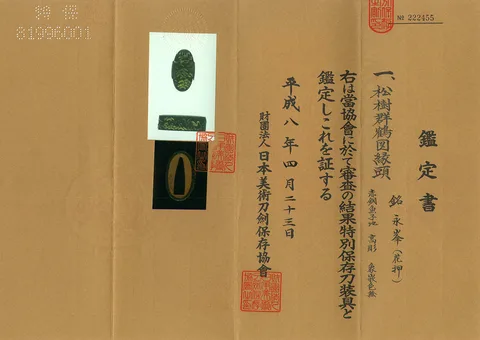 特保
81996001
№ 222455
鑑定書
一、松樹群鶴図縁頭
銘 永峯(花押)
赤銅魚子地 高彫 象嵌色絵
右は當協會に於て審査の結果特別保存刀装具と
鑑定しこれを証する
平成八年四月二十三日
財團法人 日本美術刀劍保存協會